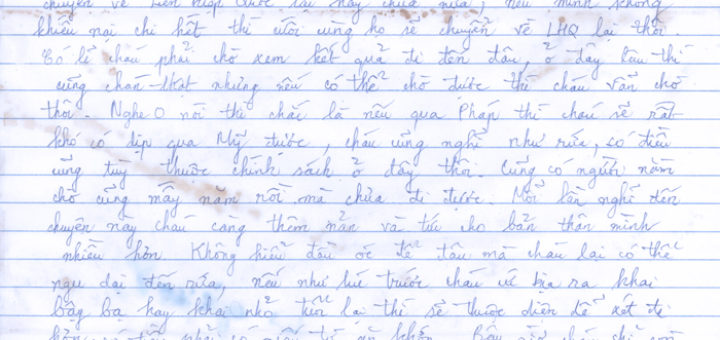 chuyện về Liên hiệp Quốc lại này chưa nữa, nếu mình không
khiếu nại chi hết thì cuối cùng họ sẽ chuyển về LHQ lại thôi.
Có lẽ cháu phải chờ xem kết quả đi đến đâu, ở đây lâu thì
cũng chán thật nhưng nếu có thể chờ được thì cháu vẫn chờ
thôi. Nghe O nói thì chắc là nếu qua Pháp thì cháu sẽ rất
khó có dịp qua Mỹ được, cháu cũng nghĩ như rứa, có điều
cũng tùy thuộc chính sách ở đây thôi. Cũng có người nằm
chờ cũng mấy năm rồi mà chưa đi được. Mỗi lần nghĩ đến
chuyện này cháu càng thêm nản và tức cho bản thân mình
nhiều hơn. Không hiểu đầu óc để đâu mà cháu lại có thể
ngu dại đến rứa, nếu như lúc trước cháu cứ bịa ra khai
bậy bạ hay khai nhỏ tuổi lại thì sẽ thuộc diện để xét đi